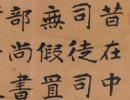 昔在中
司徒司
無假置
部尚書